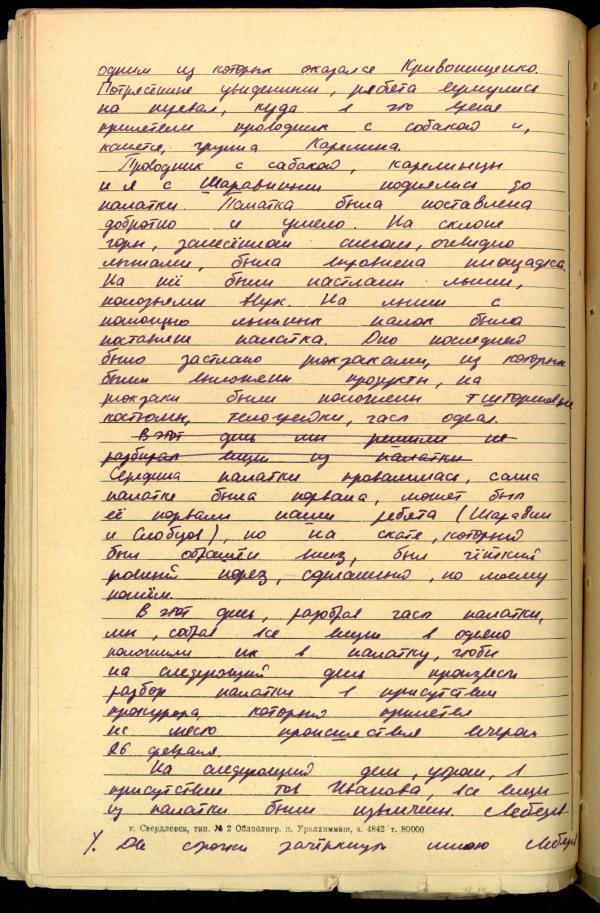 одним из которых оказался Кривонищенко.
Потрясённые увиденным, ребята вернулись
на перевал, куда в это время
прилетели проводник с собакой и,
кажется, группа Карелина.
Проводник с сабакой, карелинцы
и я с Шаравиным поднялись до
палатки. Палатка была поставлена
добротно и умело. На склоне
горы, занесённом снегом, очевидно
лыжами, была выровнена площадка.
На неё были настланы лыжи,
полозьями вверх. На лыжи с
помощью лыжных палок была
поставлена палатка. Дно последней
было застлано рюкзаками, из которых
были выложены продукты, на
рюкзаки были положены штормовые
костюмы, телогрейки, часть одеял.
В этот день мы решили не
разбирал вещи из палатки
Середина палатки провалилась, сама
палатка была порвана, может был
её порвали наши ребята (Шаравин
и Слобцов), но на скате, который
был обращён вниз, был чёткий
ровный порез, сделанный, по моему
ножём.
В этот день, разобрав часть палатки,
мы, собрав все вещи в одеяло
положили их в палатку, чтобы
на следующий день произвести
разбор палатки в присутствии
прокурора, который прилетел
на место происшествия вечером
26 февраля.
На следующий день, утром, в
присутствии тов Иванова, все вещи
из палатки были извлечены. Лебедев
г. Свердловск, тип. № 2 Облполигр. п. Уралхиммаш, з. 4842 т. 80000
Две строчки зачёркнуты мною Лебедев